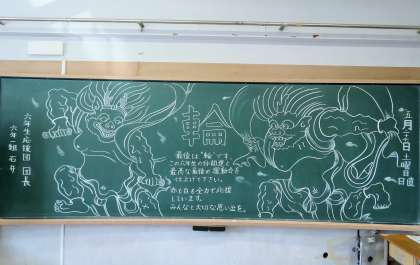 五月六日 土曜日
日直
輪
最後は"輪"です
この六年生の仲間達と
最高な最後の運動会を
作り上げて下さい。
赤も白も全力で応援
しています。
みんなと大切な思い出を。
六年生応援団 団長
六年一組 石井